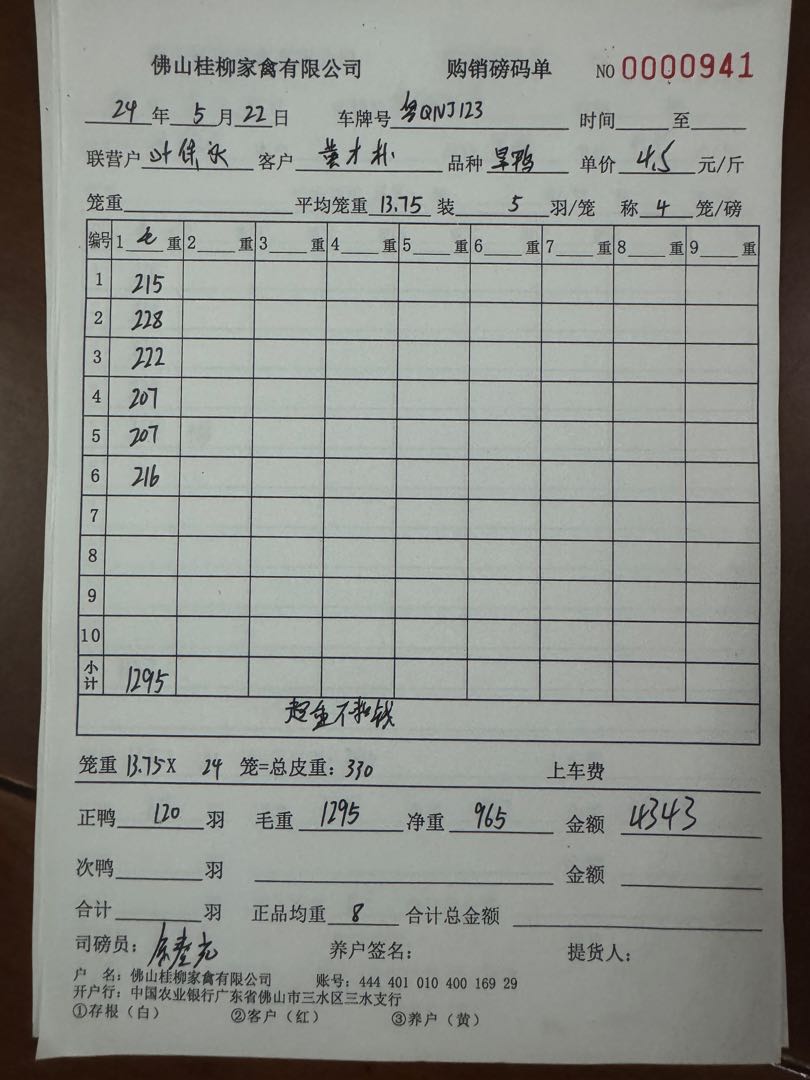 佛山桂柳家禽有限公司 购销磅码单 NO 0000941
24 年 5 月 22 日 车牌号 粤QNJ123 时间 至
联营户 叶保永 客户 黄才朴 品种 旱鸭 单价 4.5 元/斤
笼重 平均笼重 13.75 装 5 羽/笼 称 4 笼/磅
编号 1 毛 重 2 重 3 重 4 重 5 重 6 重 7 重 8 重 9 重
1 215
2 228
3 222
4 207
5 207
6 216
7
8
9
10
小计 1295
超重不扣钱
笼重 13.75X 24 笼=总皮重: 330 上车费
正鸭 120 羽 毛重 1295 净重 965 金额 4343
次鸭 羽 金额
合计 羽 正品均重 8 合计总金额
司磅员: 养户签名: 提货人:
户 名: 佛山桂柳家禽有限公司 账号: 444 401 010 400 169 29
开户行: 中国农业银行广东省佛山市三水区三水支行
①存根（白） ②客户（红） ③养户（黄）